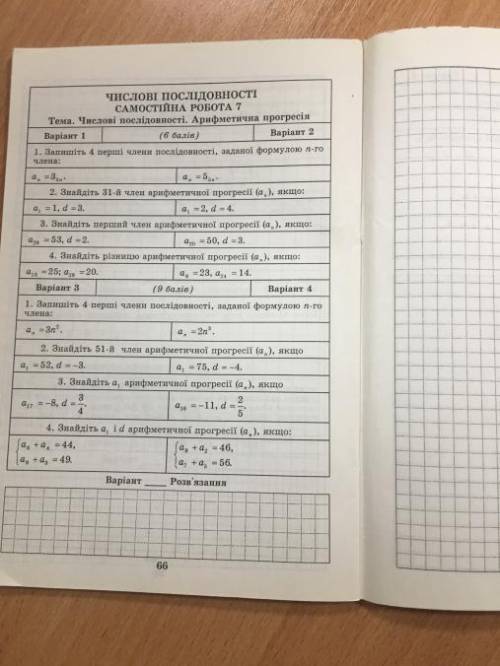 ЧИСЛОВІ ПОСЛІДОВНОСТІ
САМОСТІЙНА РОБОТА 7
Тема. Числові послідовності. Арифметична прогресія
Варіант 1 (6 балів) Варіант 2
1. Запишіть 4 перші члени послідовності, заданої формулою n-го
члена:
aₙ =3₂ₙ. aₙ =5₅ₙ.
2. Знайдіть 31-й член арифметичної прогресії (aₙ), якщо:
a₁ =1, d =3. a₁ =2, d =4.
3. Знайдіть перший член арифметичної прогресії (aₙ), якщо:
=53, d =2. =50, d =3.
4. Знайдіть різницю арифметичної прогресії (aₙ), якщо:
=25; =20. =23, =14.
Варіант 3 (9 балів) Варіант 4
1. Запишіть 4 перші члени послідовності, заданої формулою n-го
члена:
aₙ =3n². aₙ =2n³.
2. Знайдіть 51-й член арифметичної прогресії (aₙ), якщо
a₁ =52, d =–3. a₁ =75, d =–4.
3. Знайдіть a₁ арифметичної прогресії (aₙ), якщо
a₁₇ =–8, d =3/4. =–11, d =2/5.
4. Знайдіть a₁ і d арифметичної прогресії (aₙ), якщо:
=44, =46,
=49. =56.
Варіант ____ Розв'язання
66